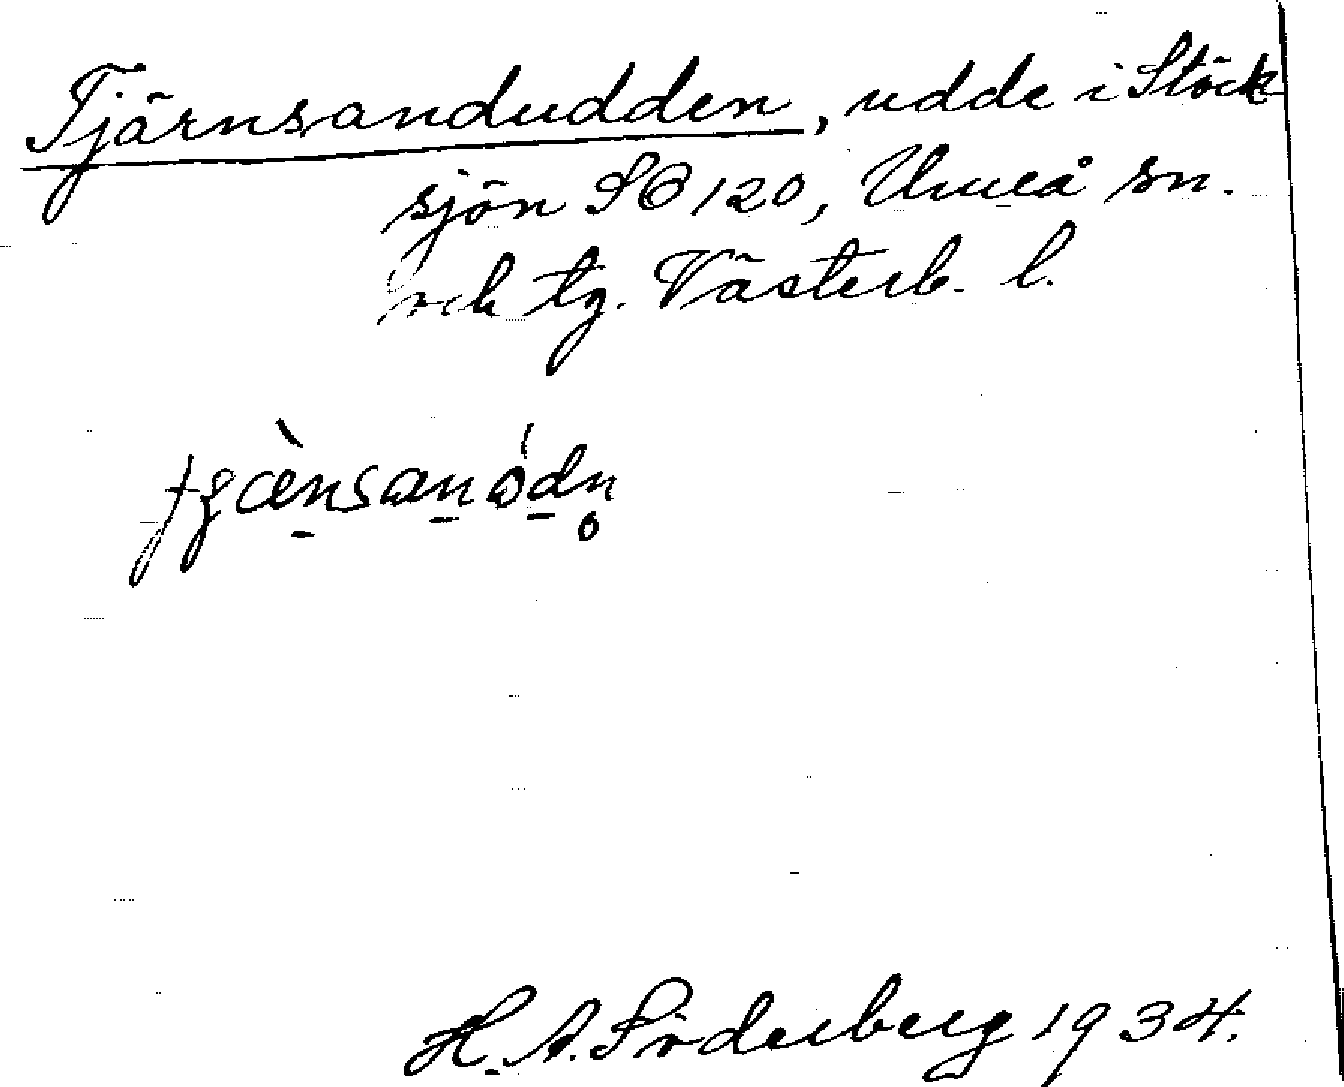 Tjärnsandudden, udde i Stöck
sjön SO 120, Umeå sn.
och tg. Västerb. l.
H. A. Söderberg 1934.